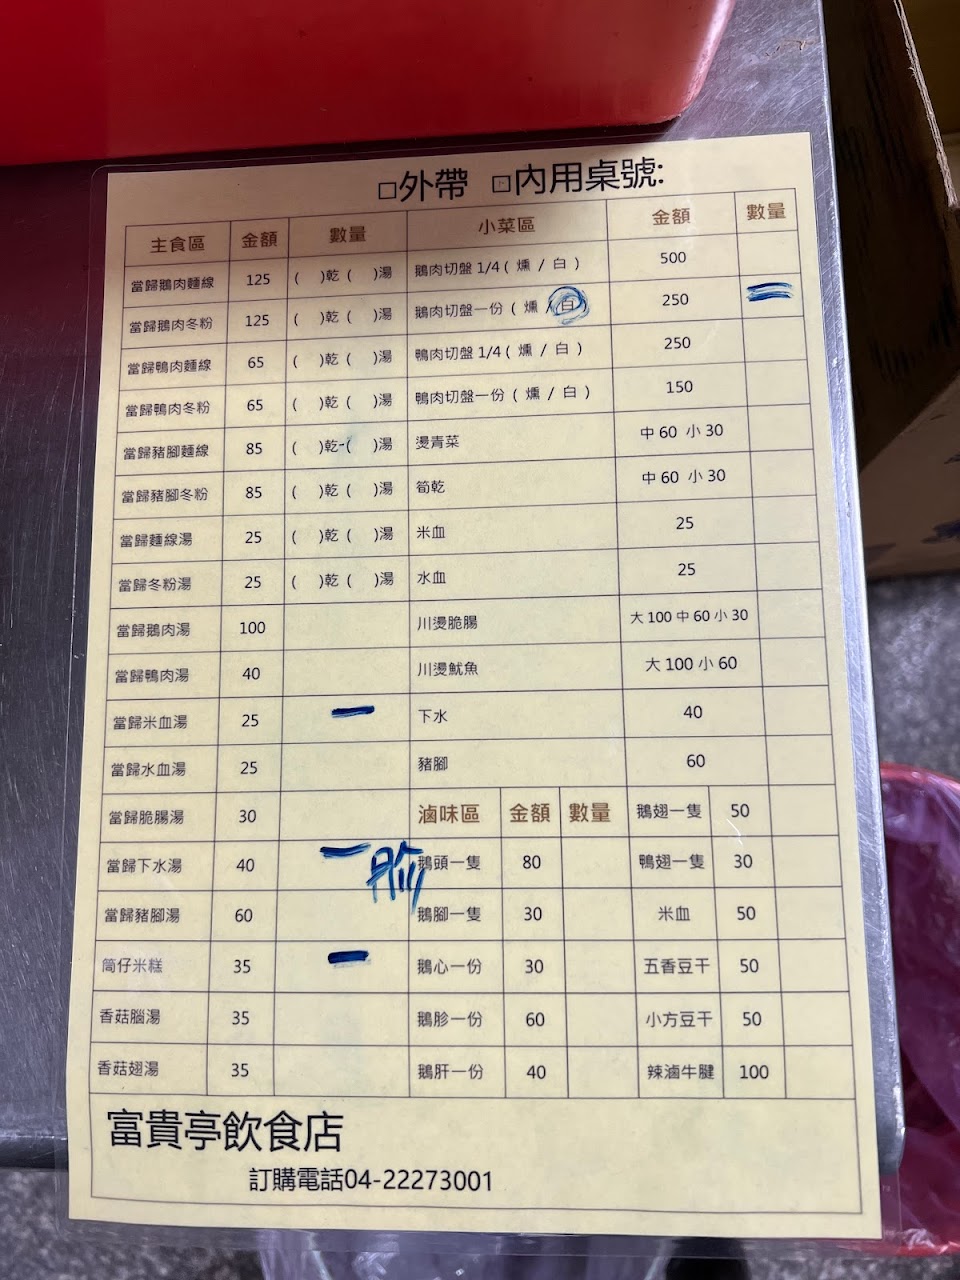 □外帶 □內用桌號:
主食區 金額 數量 小菜區 金額 數量
當歸鵝肉麵線 125 ( )乾 ( )湯 鵝肉切盤 1/4 ( 燻 / 白 ) 500
當歸鵝肉冬粉 125 ( )乾 ( )湯 鵝肉切盤一份 ( 燻 / 白 ) 250 二
當歸鴨肉麵線 65 ( )乾 ( )湯 鴨肉切盤 1/4 ( 燻 / 白 ) 250
當歸鴨肉冬粉 65 ( )乾 ( )湯 鴨肉切盤一份 ( 燻 / 白 ) 150
當歸豬腳麵線 85 ( )乾 ( )湯 燙青菜 中 60 小 30
當歸豬腳冬粉 85 ( )乾 ( )湯 筍乾 中 60 小 30
當歸麵線湯 25 ( )乾 ( )湯 米血 25
當歸冬粉湯 25 ( )乾 ( )湯 水血 25
當歸鵝肉湯 100 川燙脆腸 大 100 中 60 小 30
當歸鴨肉湯 40 川燙魷魚 大 100 小 60
當歸米血湯 25 一 下水 40
當歸水血湯 25 豬腳 60
當歸脆腸湯 30 滷味區 金額 數量 鵝翅一隻 50
當歸下水湯 40 一 鵝頭一隻 80 鴨翅一隻 30
當歸豬腳湯 60 鵝腳一隻 30 米血 50
筒仔米糕 35 一 鵝心一份 30 五香豆干 50
香菇腦湯 35 鵝胗一份 60 小方豆干 50
香菇翅湯 35 鵝肝一份 40 辣滷牛腱 100
富貴亭飲食店
訂購電話04-22273001